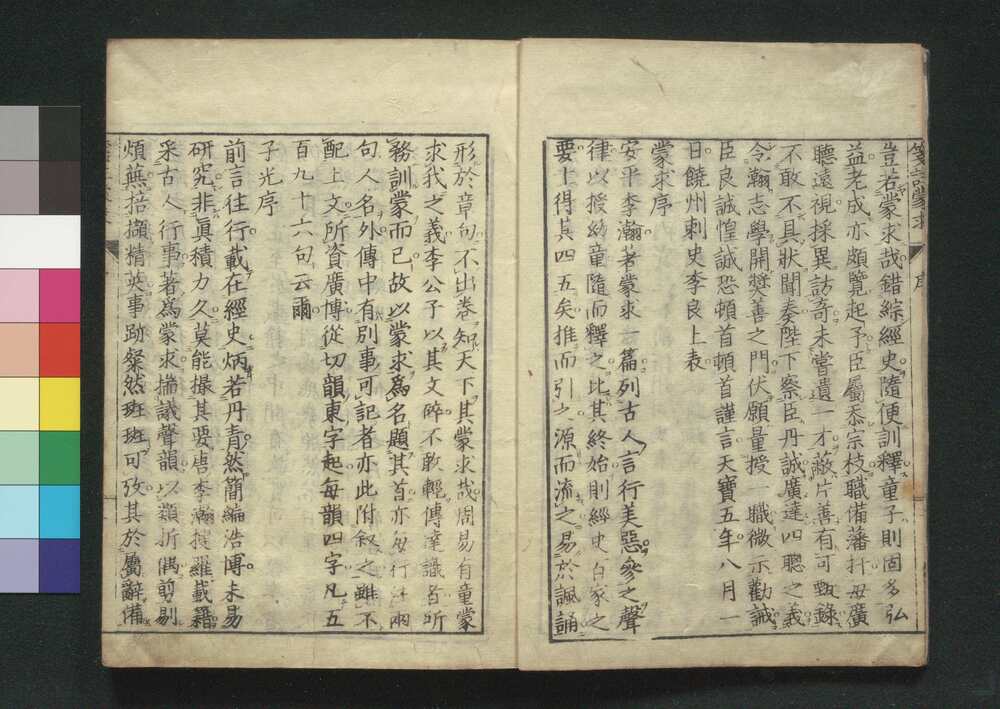 豈若蒙求哉錯綜經史隨便訓釋童子則固多弘
益老成亦頗覽起予臣屬忝宗枝職備藩扞毋廣
聽遠視採異訪奇未嘗遺一才蔽片善有可甄錄
不敢不具狀聞奏陛下察臣丹誠廣達四聰之義
令瀚志學開奬善之門伏願量授一職微示勸誡
臣良誠惶誠恐頓首頓首謹言天寶五年八月一
日饒州刺史李良上表
蒙求序
安平李瀚著蒙求一篇列古人言行美惡參之聲
律以授幼童隨而釋之比其終始則經史百家之
要十得其四五矣推而引之源而流之易於諷誦
形於章句不出卷知天下其蒙求哉周易有童蒙
求我之義李公子以其文碎不敢輕傳達識者所
務訓蒙而已故以蒙求爲名題其首亦每行注兩
句人名外傳中有別事可記者亦此附叙之雖不
配上文所資廣博從切韻東字起每韻四字凡五
百九十六句云爾
子光序
前言往行載在經史炳若丹青然簡編浩博未易
研究非眞積力久莫能撮其要唐李瀚摸羅載籍
采古人行事著爲蒙求揣議聲韻以類折偶剪剔
煩蕪掊擷精英事跡粲然班班可攷其於屬辭備
箋註蒙求 序